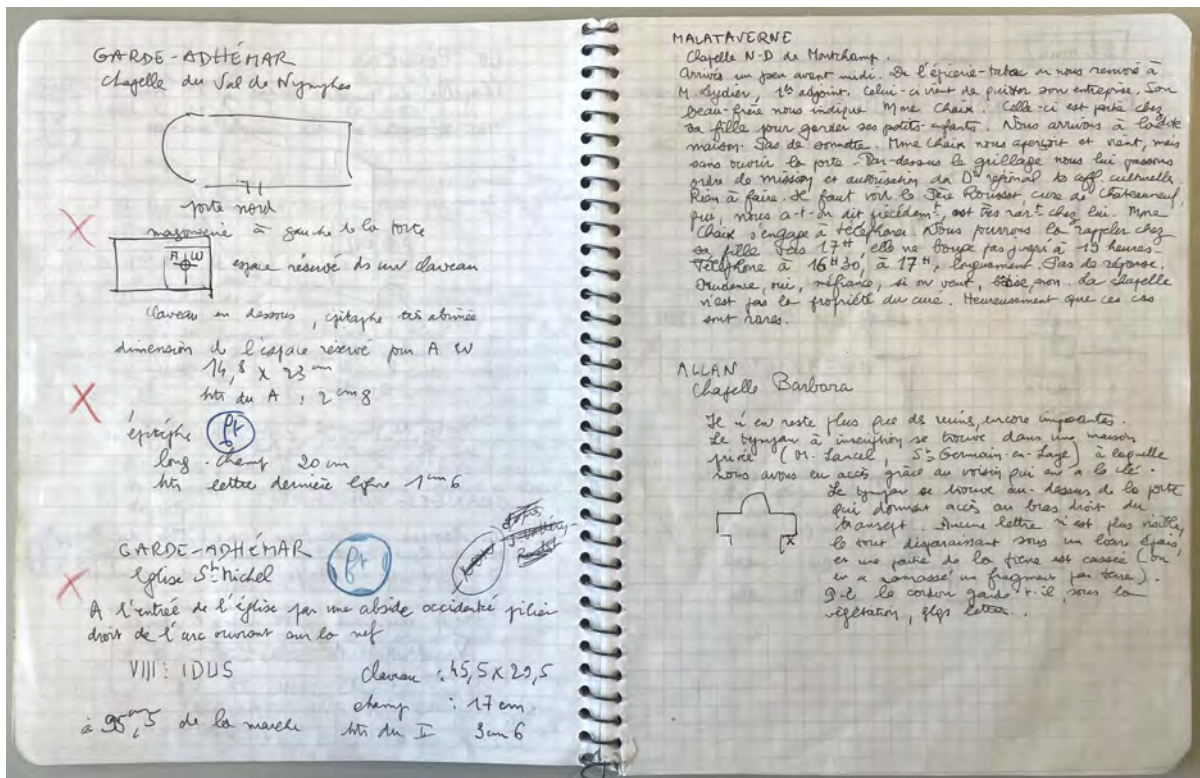 GARDE-ADHÉMAR
Chapelle du Val des Nymphes
porte nord
maçonnerie à gauche de la porte
A W
espace réservé ds un claveau
Claveau en dessous, épitaphe très abîmée
dimension de l'espace réservé pour A W
14,8 x 23 cm
htr du A : 2 cm 8
épitaphe
pt
long. champ 20 cm
htr lettre dernière ligne 1 cm 6
GARDE-ADHÉMAR
Eglise St Michel
pt
A l'entrée de l'église par une abside occidentée pilier
droit de l'arc ouvrant sur la nef
VIII : IDUS
claveau : 45,5 x 29,5
champ : 17 cm
à 95 cm,5 de la marche
htr du I 3 cm 6
MALATAVERNE
Chapelle N-D de Montchamp.
Arrivés un peu avant midi. De l'épicerie-tabac on nous renvoie à
M. Lydier, 1er adjoint. Celui-ci vient de quitter son entreprise. Son
beau-frère nous indique Mme Chaix. Celle-ci est partie chez
sa fille pour garder ses petits-enfants. Nous arrivons à la dite
maison. Pas de sonnette. Mme Chaix nous aperçoit et vient, mais
sans ouvrir la porte. Par-dessus le grillage nous lui passons
ordre de mission et autorisation du Dr régional des aff. culturelles.
Rien à faire. Il faut voir le Père Rousset, curé de Châteauneuf,
qui, nous a-t-on dit précédemt, est très rart chez lui. Mme
Chaix s'engage à téléphoner. Nous pourrons la rappeler chez
sa fille vers 17H, elle ne bouge pas jusqu'à 19 heures.
Téléphone à 16H30, à 17H, longuement. Pas de réponse.
Prudence, oui, méfiance, si on veut, bêtise, non. La chapelle
n'est pas la propriété du curé. Heureusement que ces cas
sont rares.
ALLAN
Chapelle Barbara
Il n'en reste plus que des ruines, encore imposantes.
Le tympan à inscription se trouve dans une maison
privée (M. Lancel, St Germain-en-Laye) à laquelle
nous avons eu accès grâce au voisin qui en a la clé.
Le tympan se trouve au-dessus de la porte
qui donnait accès au bras droit du
transept. Aucune lettre n'est plus visible,
le tout disparaissant sous un lierre épais,
et une partie de la pierre est cassée (on
en a ramassé un fragment par terre).
P-ê le cordon garde-t-il, sous la
végétation, qlqs lettres.
x